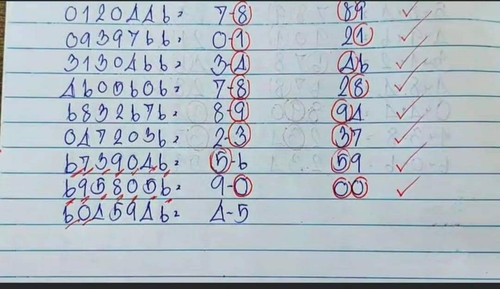 0120446= 7-8 89 ✓
0939766= 0-1 21 ✓
3130466= 3-4 46 ✓
4600606= 7-8 28 ✓
6832676= 8-9 94 ✓
0472036= 2-3 37 ✓
6739046= 5-6 59 ✓
6958056= 9-0 00 ✓
6045946= 4-5